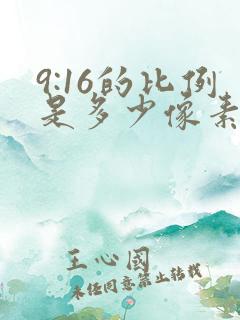 9:16的比例
是多少像素
王心國
未经同意禁止转载